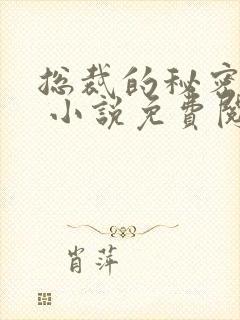 总裁的秘密
小說免費閱
肖萍